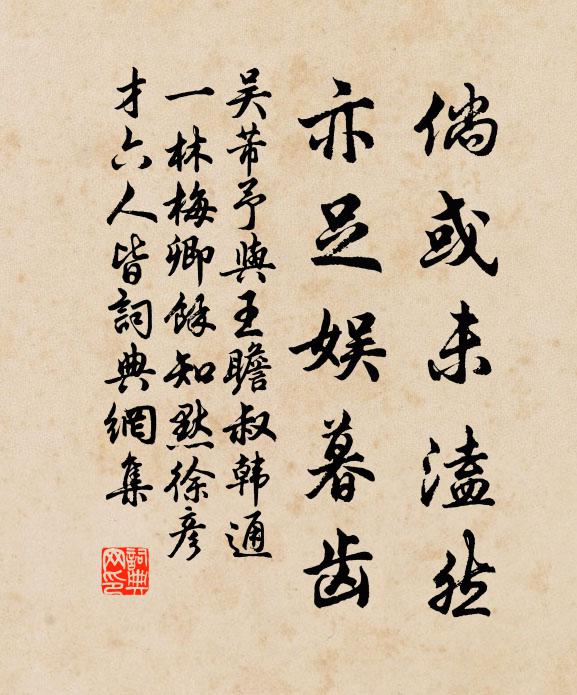 倘或未溘然
亦足娱暮齿
吴芾予與王瞻叔韩通
一林梅卿餘知默徐彦
才六人皆詞典網集
詞典网印